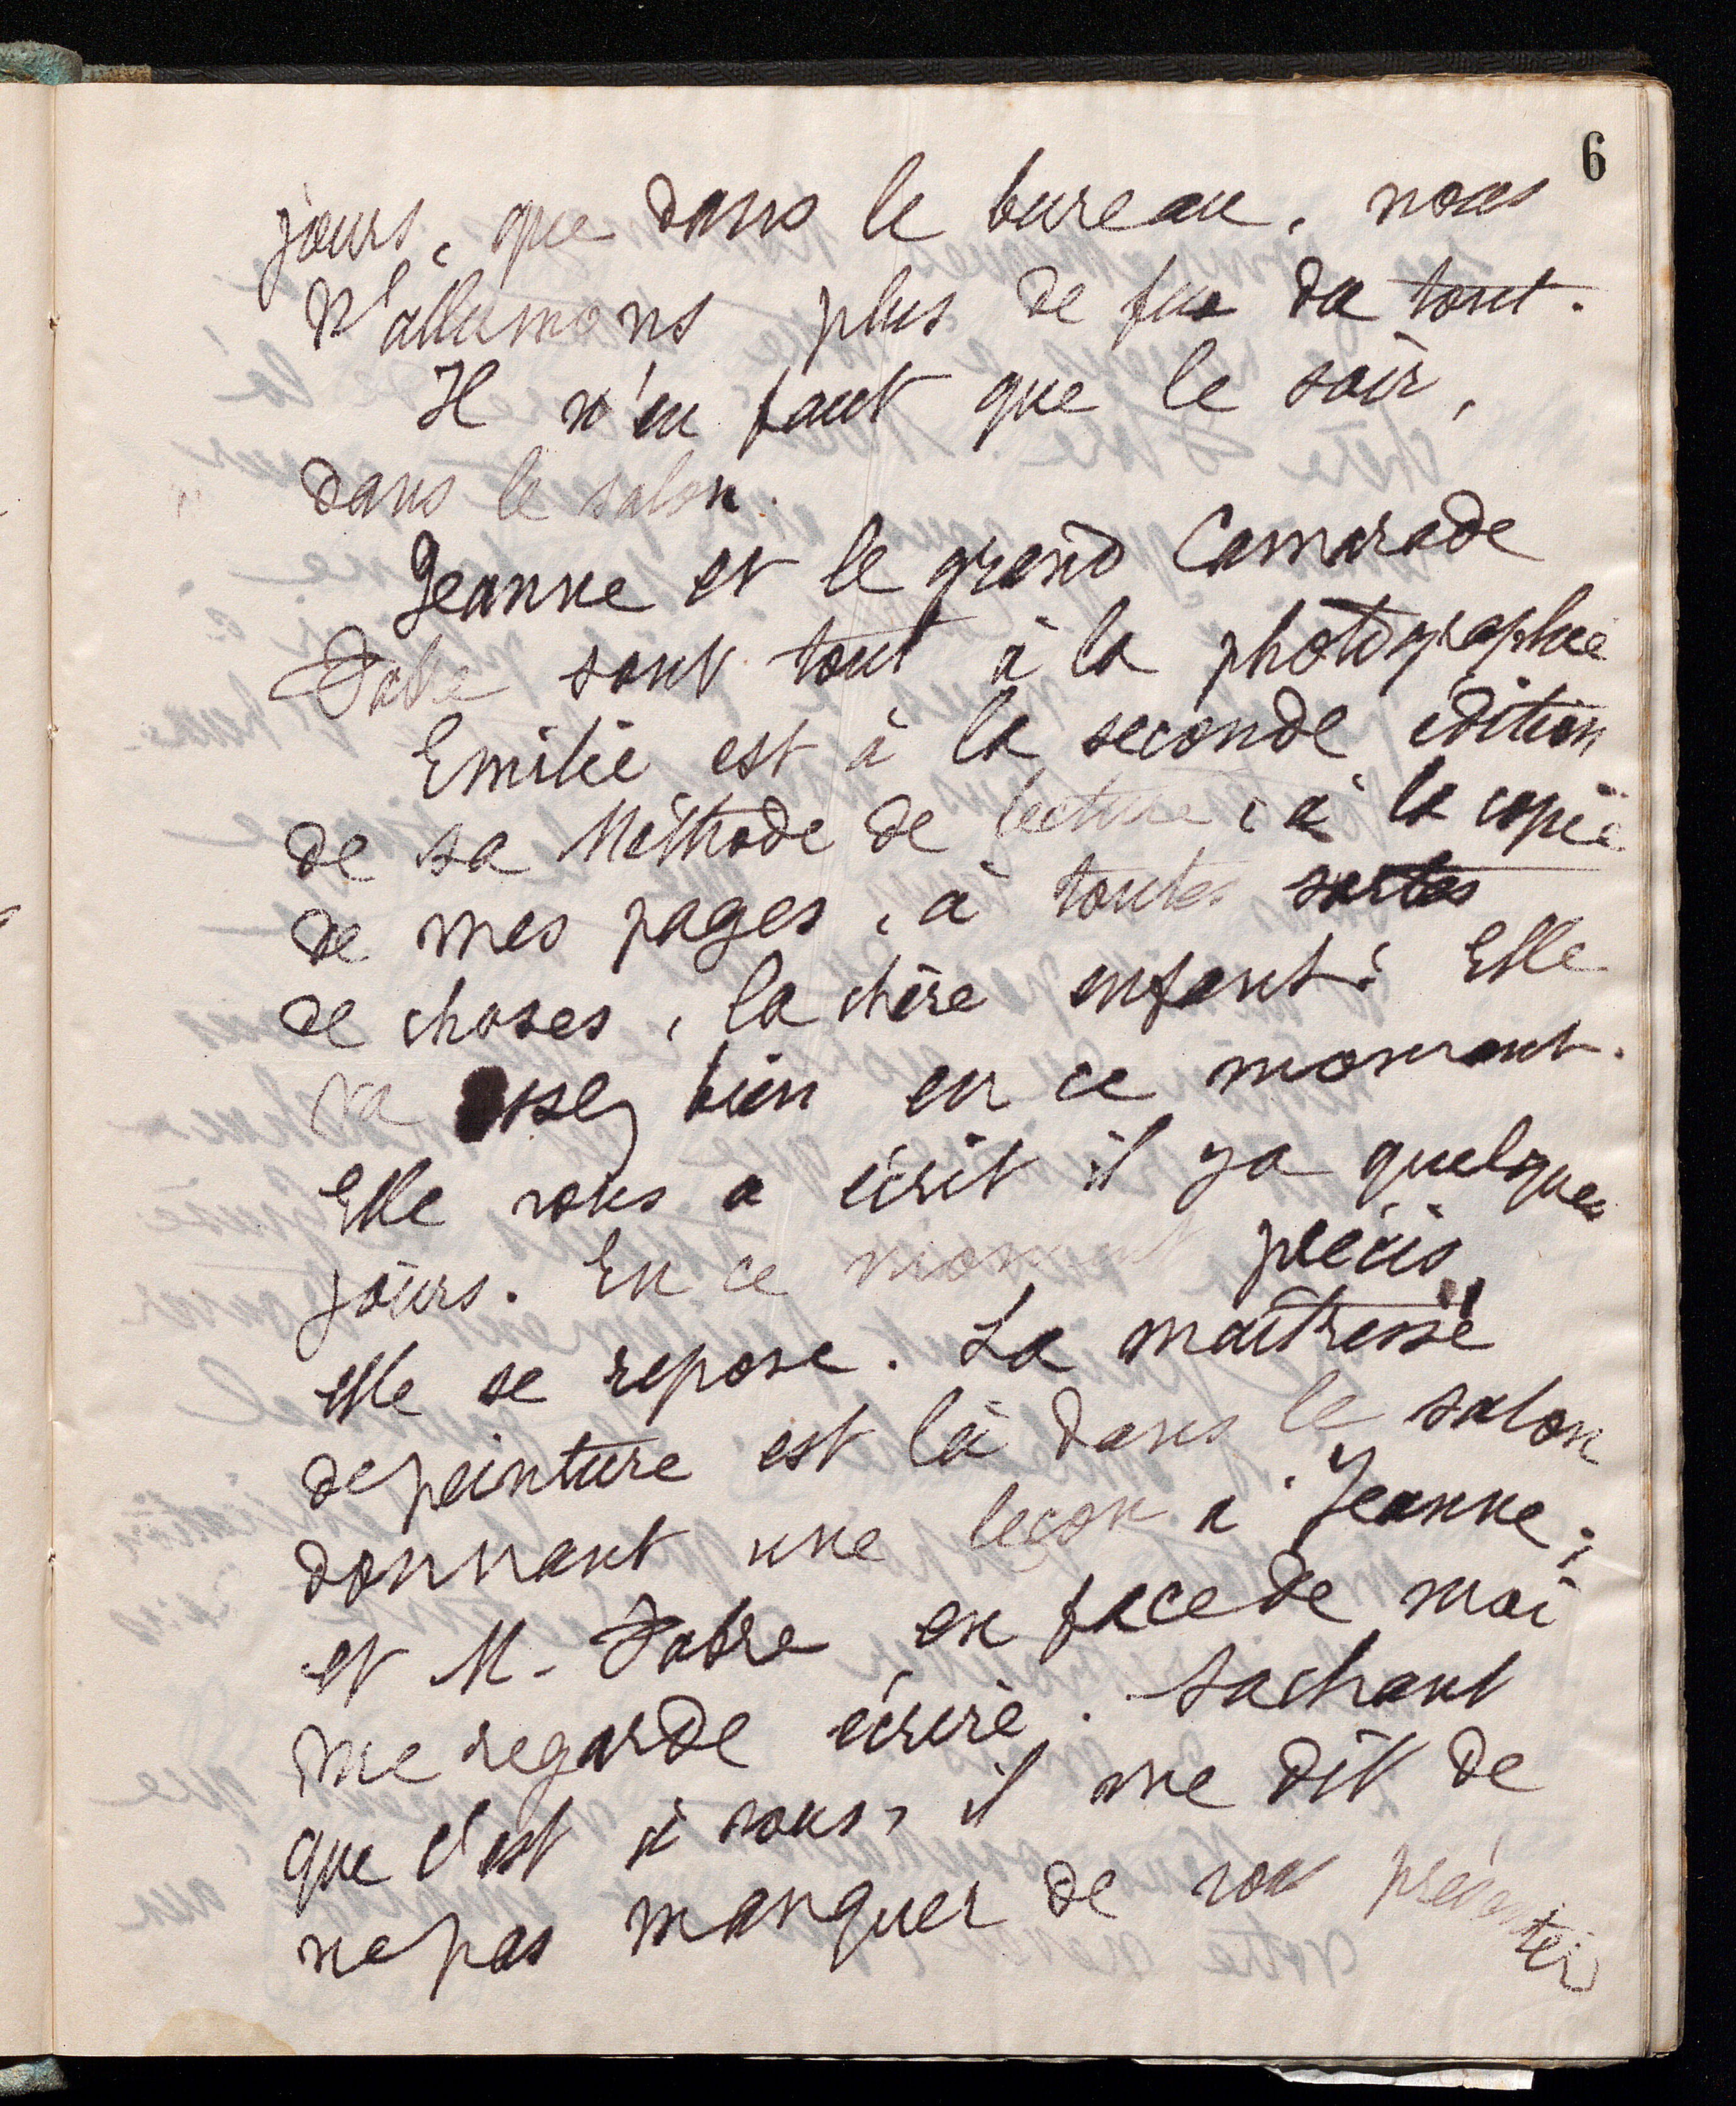 6
jours, que dans le bureau, nous
n'allumons plus de feu du tout.
Il n'en faut que le soir,
dans le salon.
Jeanne et le grand Camarade
Fabre sont tout à la photographie
Emilie est à la seconde édition
de sa Méthode de lecture, à la copie
de mes pages, à toutes sortes
de choses, la chère enfant! Elle
va assez bien en ce moment.
Elle vous a écrit il y a quelques
jours. En ce moment précis,
elle se repose. La maîtresse
de peinture est là dans le salon
donnant une leçon à Jeanne;
et M. Fabre en face de moi
me regarde écrire. Sachant
que c'est à vous, il me dit de
ne pas manquer de vous présenter